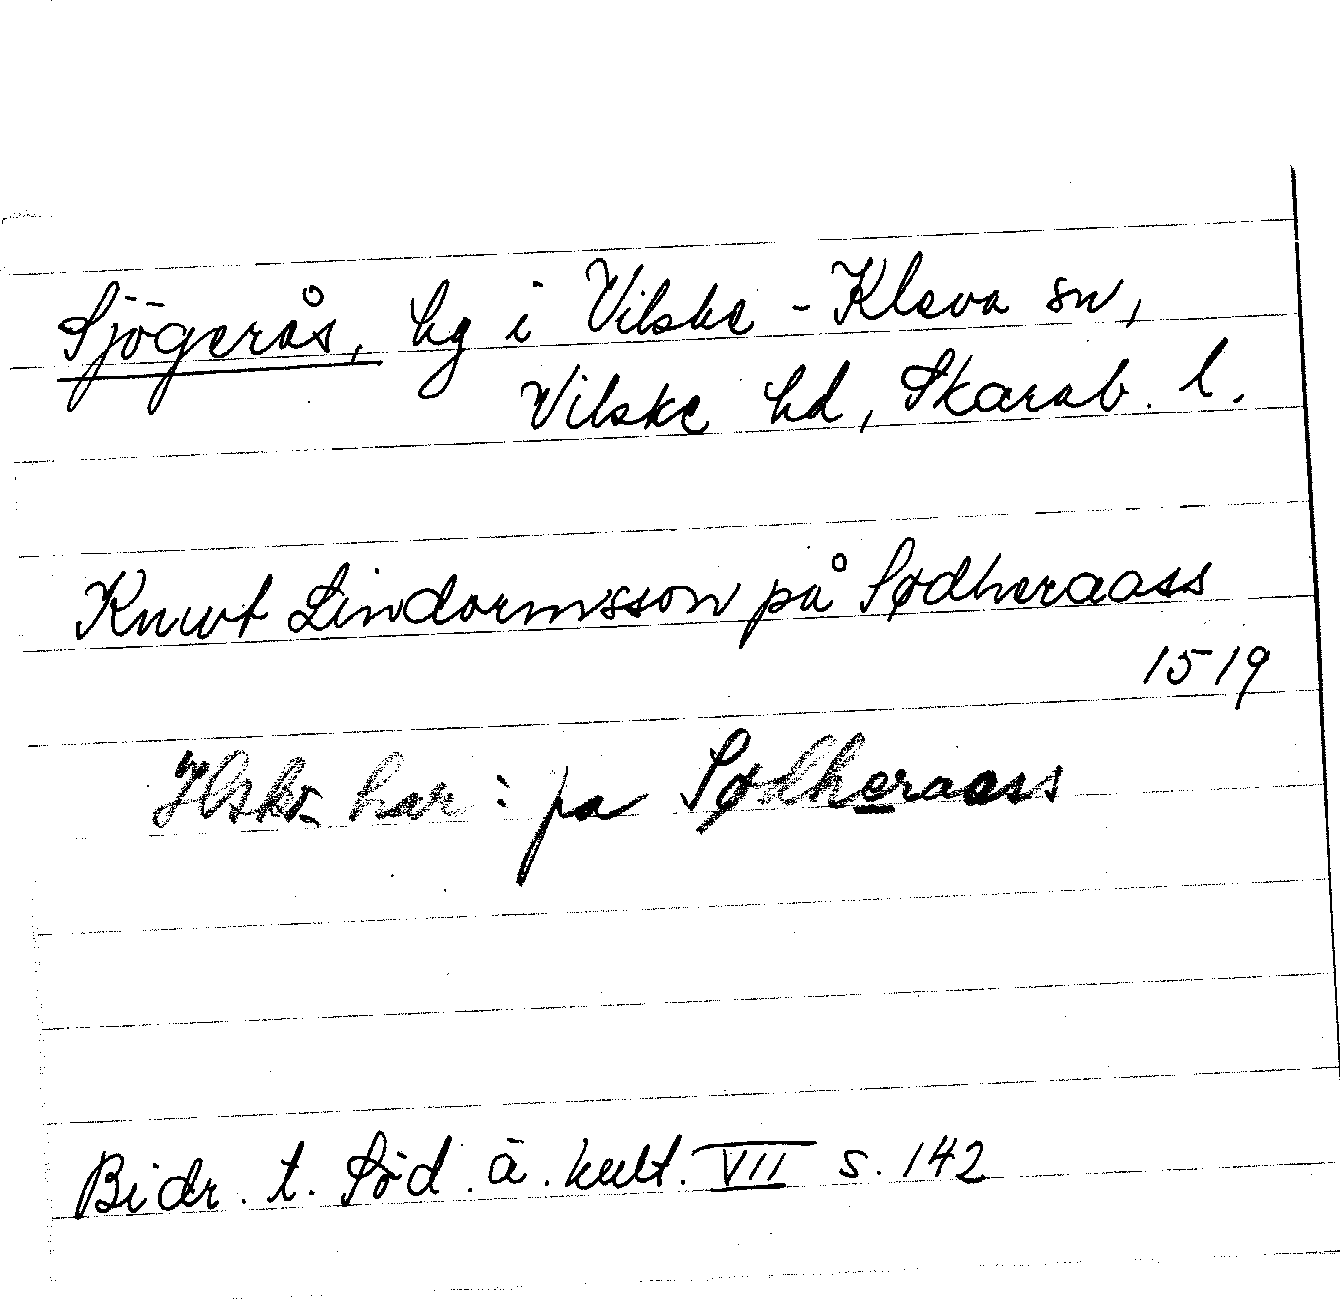 Sjögerås, hg i Vilske-Kleva sn,
Vilske hd, Skarab. l.
Knwt Lindormsson på Sødheraass
1519
Hskr har: pa Sødheraass
Bidr. t. Söd. ä. kult. VII s. 142